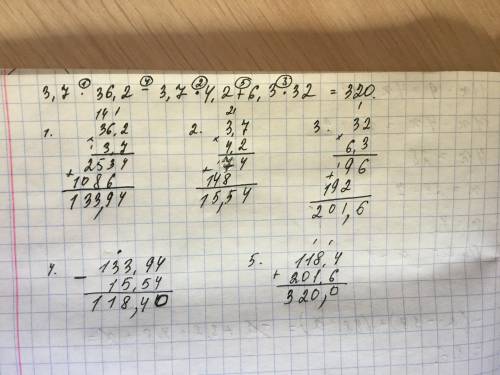 3,7 · 36,2 − 3,7 · 4,2 + 6,3 · 32 = 320.
1 4 2 5 3
1.
14 1
36,2
× 3,7
2534
+ 1086
133,94
2.
21
3,7
× 4,2
74
+ 148
15,54
3.
1
32
× 6,3
96
+ 192
201,6
4.
133,94
− 15,54
118,40
5.
1 1
118,4
+ 201,6
320,0